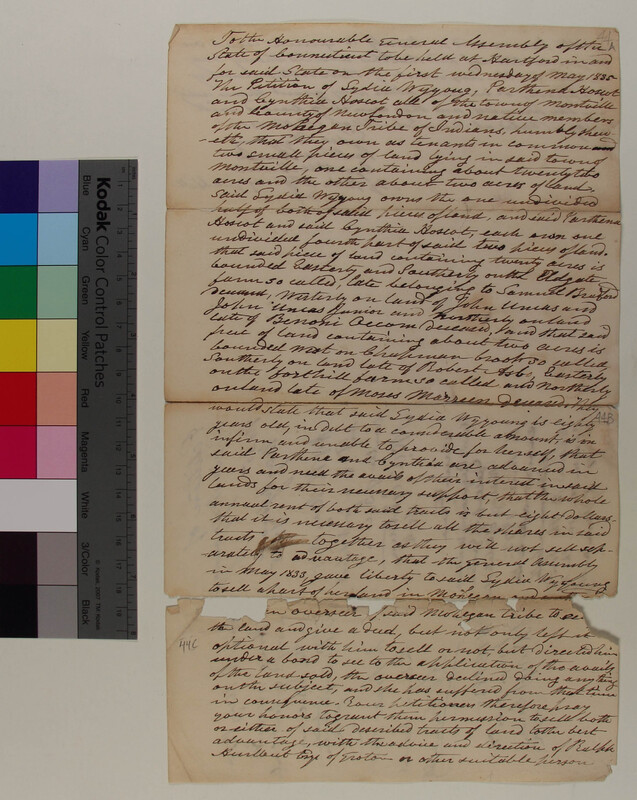 To the Honourable General Assembly of the
State of Connecticut to be held at Hartford in and
for said State on the first wednesday of May 1835
The Petition of Lydia Wyyoug, Parthena Hoscot
and Cynthia Hoscot all of the town of Montville
and County of New London and native members
of the Mohegan Tribe of Indians, humbly shew
-eth, that they own as tenants in common
two small pieces of land lying in said town of
Montville, one containing about twenty two
acres and the other about two acres of land.
Said Lydia Wyyoug owns the one undivided
half of both of said pieces of land, and said Parthena
Hoscot and said Cynthia Hoscot, each own one
undivided fourth part of said two pieces of land.
that said piece of land containing twenty acres is
bounded Easterly and Southerly on the
farm so called, late belonging to Samuel Bradford
deceased, Westerly on land of John Uncas and
John Uncas Junior and Northerly on land
late of Benoni Occom deceased, and that said
piece of land containing about two acres is
bounded West on Chapman brook so called,
Southerly on land late of Robert Ashbo, Easterly
on the forthill farm so called and Northerly
on land late of Moses deceased. They
would state that said Lydia Wyyoug is eighty
years old, in debt to a considerable amount, is in
infirm and unable to provide for herself, that
said Parthena and Cynthia are advanced in
years and need the avails of their interest in said
lands for their necessary support, that the whole
annual rent of both said tracts is but eight dollars.
that it is necessary to sell all the shares in said
tracts together as they will not sell sep-
arately to advantage, that the general assembly
in May 1833, gave liberty to said Lydia Wyyoug
to sell a part of her land in Mohegan and
overseer of said Mohegan tribe to
the land and give a deed, but not only left it
optional with him to sell or not, but directed him
under a bond to see to the application of the avails
of the land sold, the overseer declined doing anything
on the subject, and she has suffered from that time
in consequence. Your petitioners therefore pray
your honors to grant them permission to sell both
or either of said described tracts of land to the best
advantage, with the advice and direction of Ralph
Hurlbut Esqr of Groton or other suitable person
44B
44C
Kodak Color Control Patches
Blue
Cyan
Green
Yellow
Red
Magenta
White
3/Color
Black